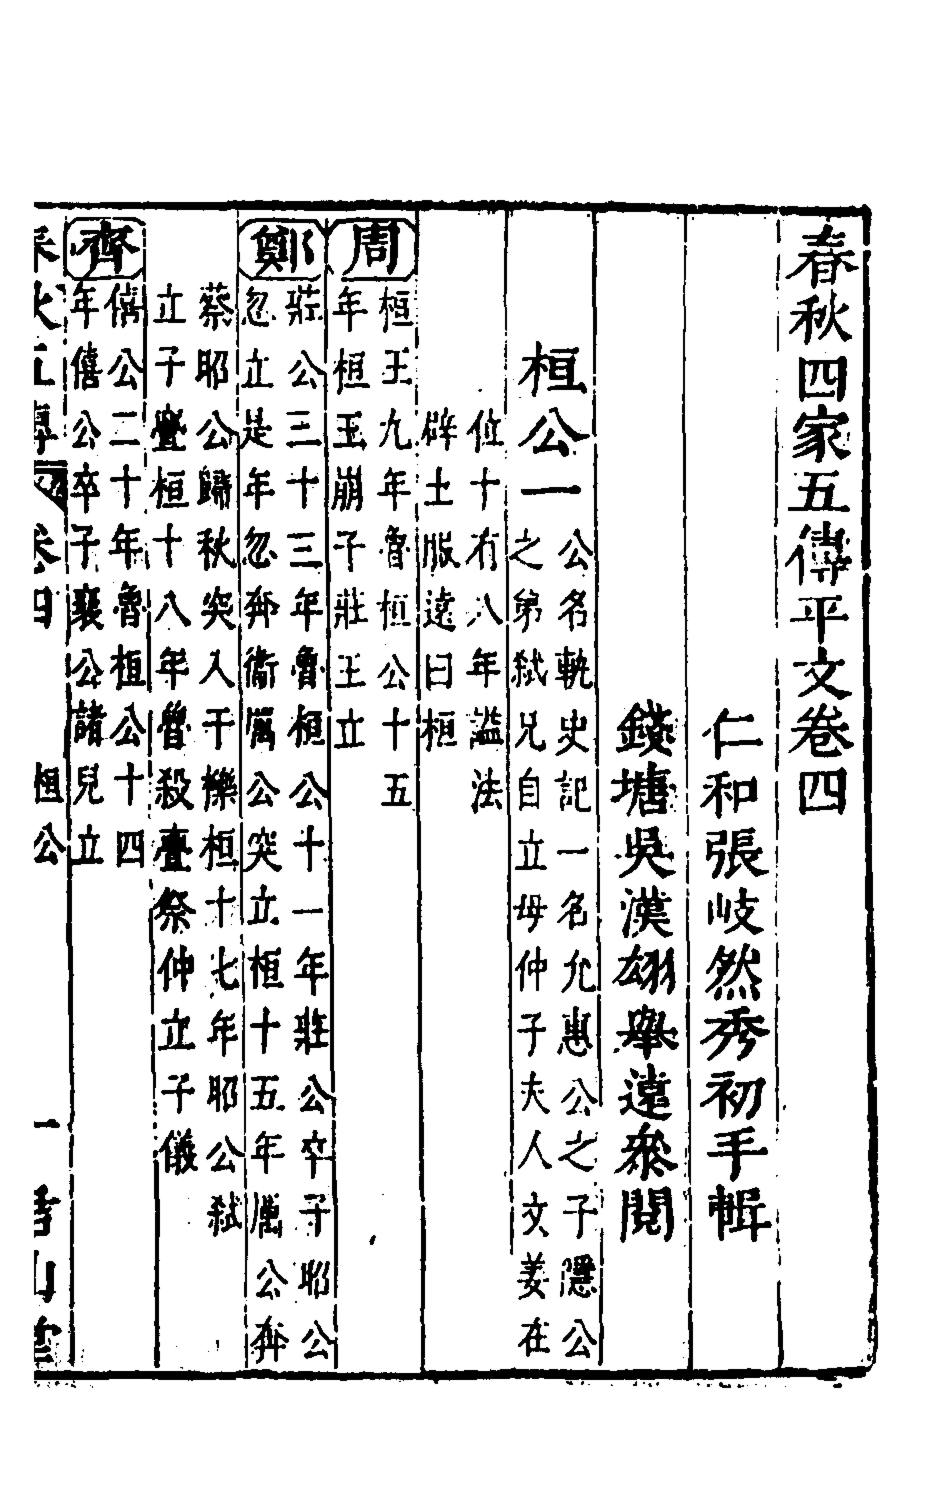 春秋四家五傳平文卷四
仁和張岐然秀初手輯
錢塘吳漢翊舉遠叅閱
桓公一
公名軌史記一名允惠公之子隱公
之弟弑兄自立母仲子夫人文姜在
位十有八年謚法
辟土服遠曰桓
周
桓王九年魯桓公十五
年桓王崩子莊王立
鄭
莊公三十三年魯桓公十一年莊公卒子昭公
忽立是年忽奔衞厲公突立桓十五年厲公奔
蔡昭公歸秋突入于櫟桓十七年昭公弑
立子亹桓十八年齊殺亹祭仲立子儀
齊
僖公二十年魯桓公十四
年僖公卒子襄公諸兒立
春秋五傳 卷四 桓公 一